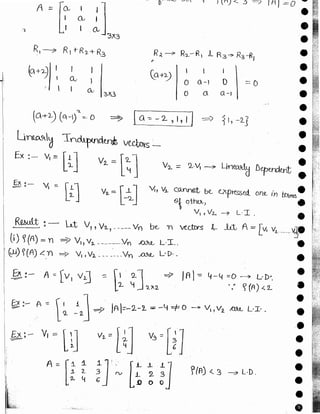 A = [a 1 1
1 a 1
1 1 a]3x3
R₁ → R₁+R₂+R₃
R₂→ R₂-R₁ & R₃→R₃-R₁
(a+2) |1 1 1
1 a 1
1 1 a|3x3
(a+2) |1 1 1
0 a-1 0
0 0 a-1| = 0
(a+2) (a-1)² = 0 ⇒ a = -2, 1, 1 ⇒ {1, -2}
Linearly Independent vectors -
Ex :- V₁ = [1 2] V₂ = [2 4] V₂ = 2V₁ → Linearly Dependent
Ex :- V₁ = [1 2] V₂ = [1 -2] V₁, V₂ cannot be expressed one in terms
of other,
V₁, V₂ → L.I.
Result :- Let V₁, V₂, ----- Vn be n vectors & let A = [V₁ V₂ ...
(i) ρ(A) = n ⇒ V₁, V₂ ------- Vn are L.I..
(ii) ρ(A) < n ⇒ V₁, V₂ ------- Vn are L.D..
Ex :- A = [V₁ V₂] = [1 2
2 4]2x2 ⇒ |A| = 4-4 = 0 → L.D.
∵ ρ(A)<2.
Ex :- A = [1 1
2 -2] ⇒ |A|=-2-2 = -4 ≠ 0 → V₁,V₂ are L.I.
Ex :- V₁ = [1 1 2] V₂ = [1 2 4] V₃ = [1 3 6]
A = [1 1 1
1 2 3
2 4 6] ~ [1 1 1
1 2 3
0 0 0] ρ(A) < 3 → L.D.